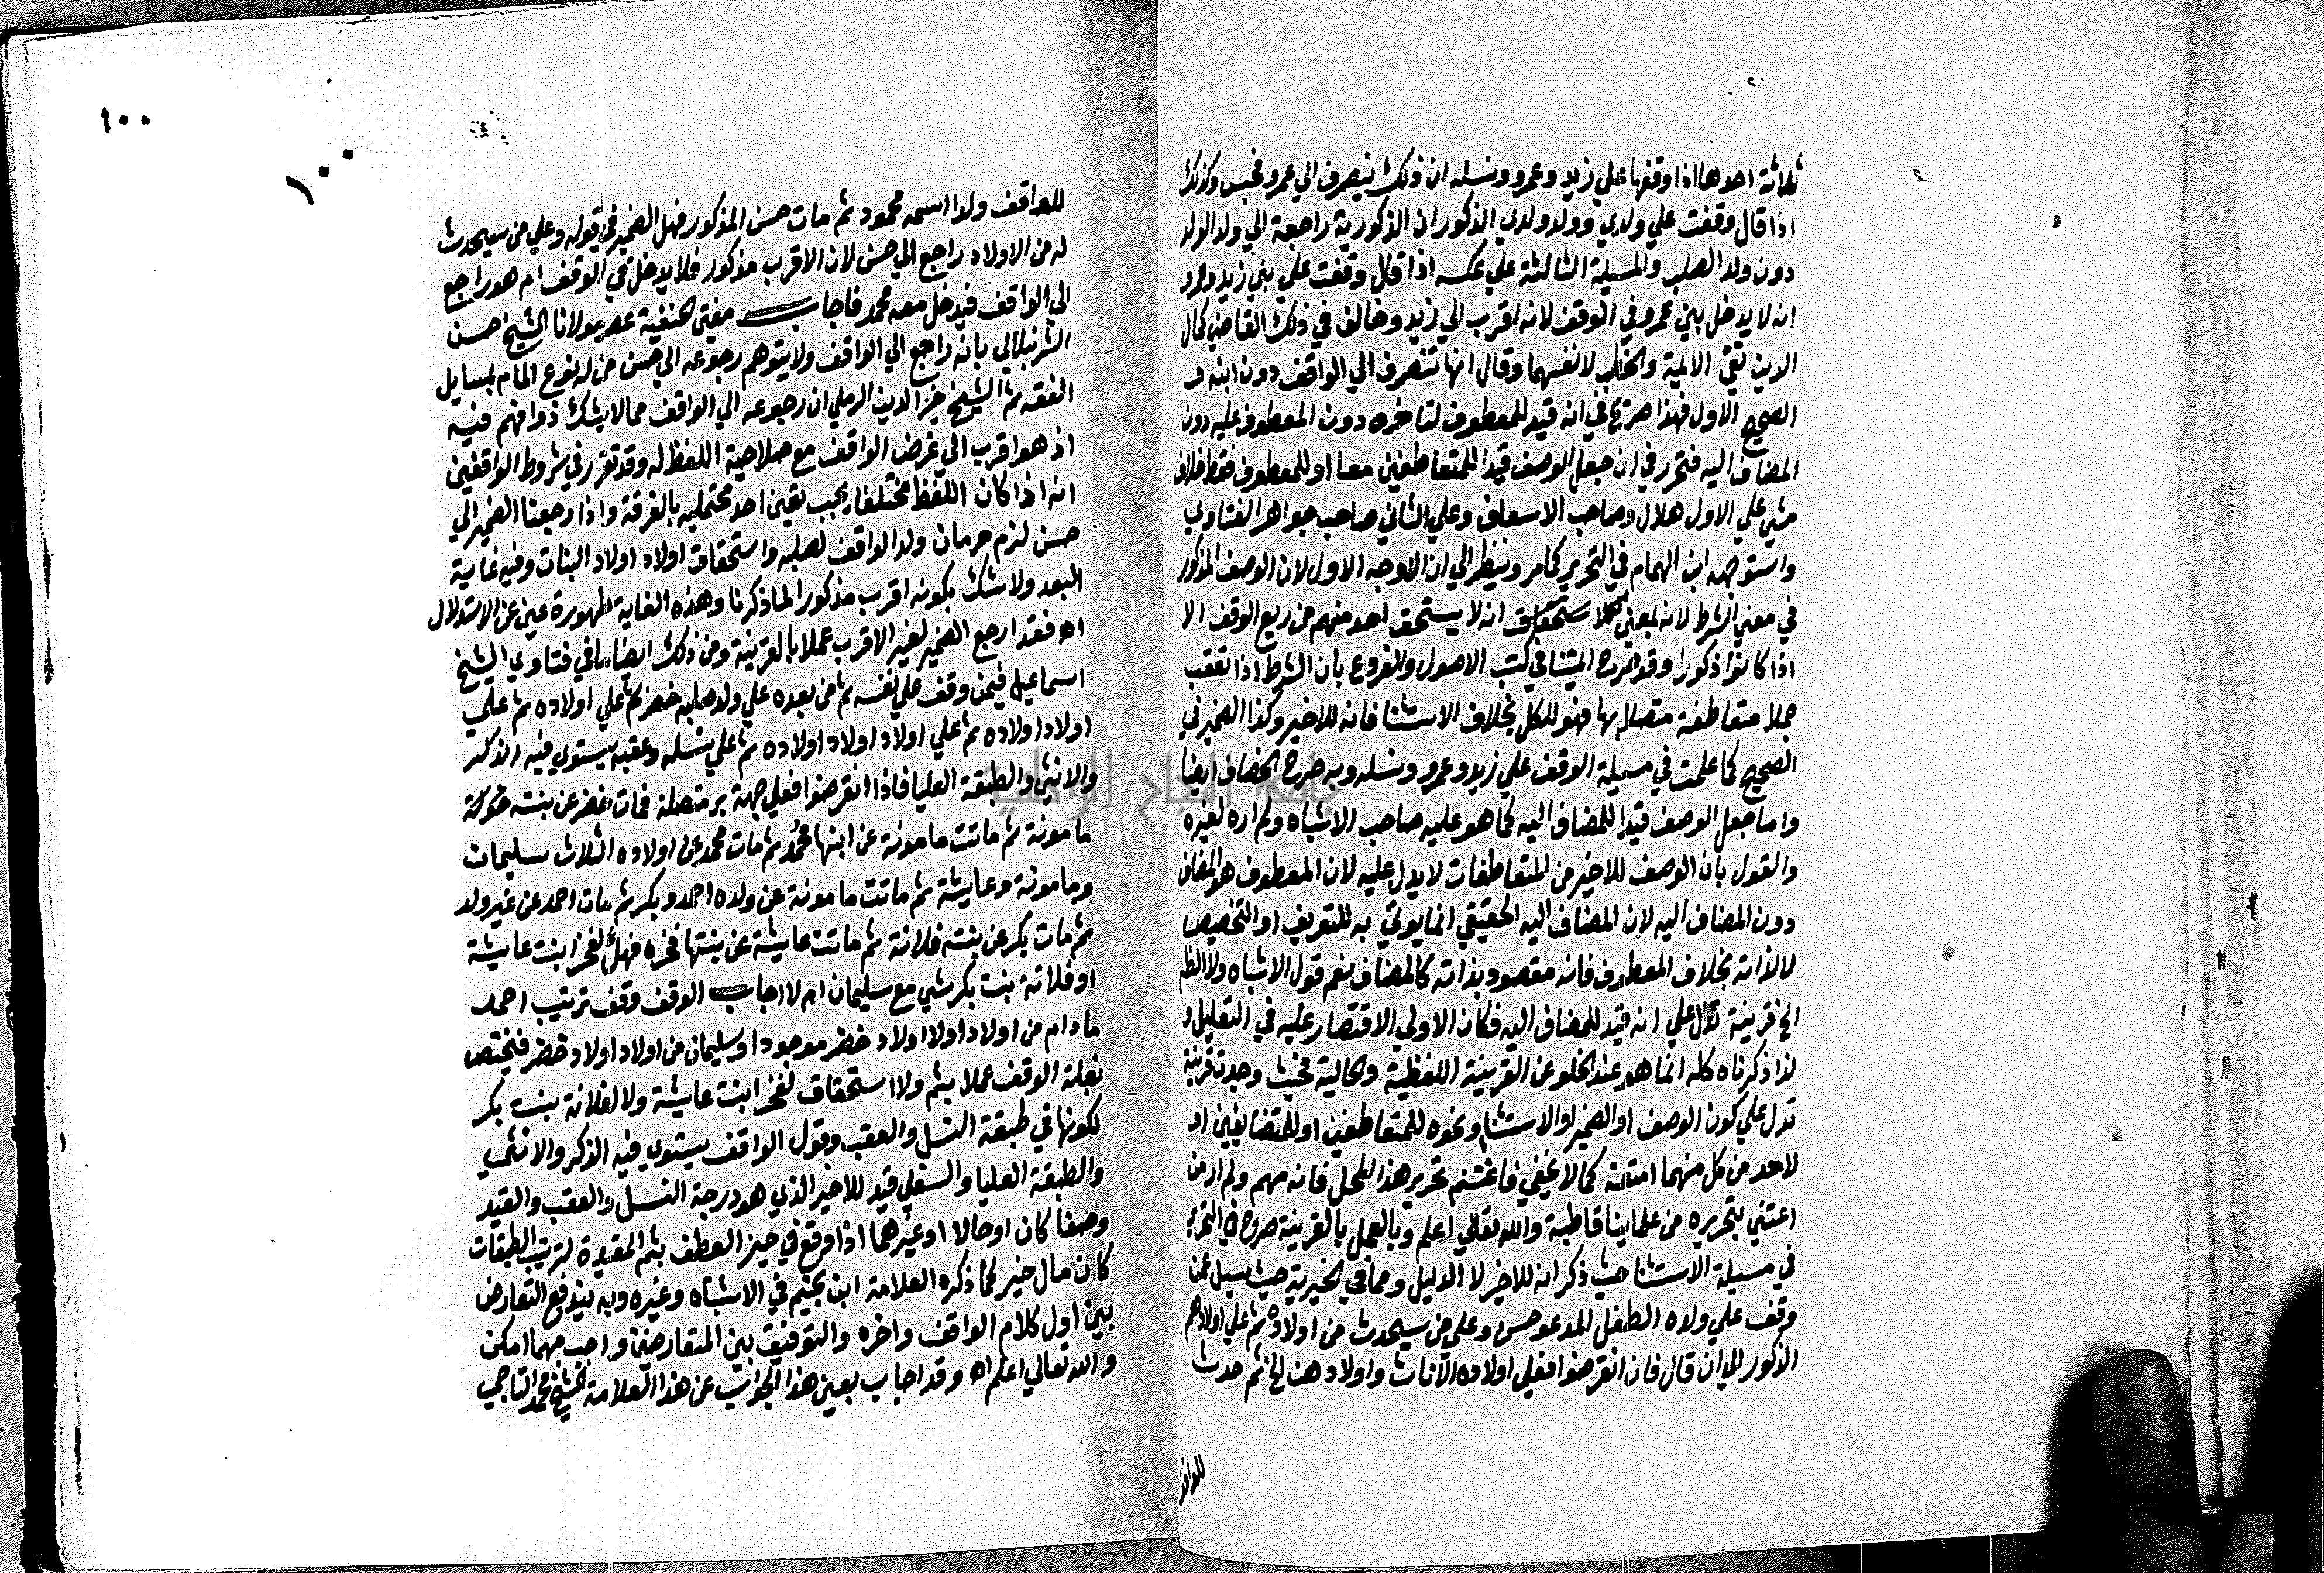 ثلاثة احدها اذا وقفها علي زيد وعمرو ونسله ان ذلك ينصرف الي عمرو فحسب وكذلك
اذا قال وقفت علي ولدي وولد ولدي الذكور ان الذكورية راجعة الي ولد الولد
دون ولد الصلب والمسيلة الثالثة علي عكسه اذا قال وقفت علي بني زيد وعمرو
انه لا يدخل بني عمرو في الوقف لانه اقرب الي زيد وخالف في ذلك القاضي كمال
الدين تقي الايمة والخطب لانفسهما وقال انها تنصرف الي الواقف دون ابنه و
الصحيح الاول فهذا صريح في انه قيد للمعطوف لتاخره دون المعطوف عليه دون
المضاف اليه فتحرر في ان جعل الوصف قيدا للمتعاطفين معا او للمعطوف فقط خلاف
مشي علي الاول هلال وصاحب الاسعاف وعلي الثاني صاحب جواهر الفتاوي
واستوجهه ابن الهمام في التحرير كما مر وينظر الي ان الاوجه الاول لان الوصف المذكور
في معني الشرط لانه بمعني الاستحقاق انه لا يستحق احد منهم من ريع الوقف الا
اذا كانوا ذكورا وقد صرح ايمتنا في كتب الاصول والفروع بان الشرط اذا تعقب
جملا متعاطفة متصلا بها فهو للكل بخلاف الاستثنا فانه للاخير وكذا الضمير في
الصحيح كما علمت في مسيلة الوقف علي زيد وعمرو ونسله وبه صرح الخصاف ايضا
واما جعل الوصف قيدا للمضاف اليه كما هو عليه صاحب الاشباه ولم اره لغيره
والقول بان الوصف للاخير من المتعاطفات لا يدل عليه لان المعطوف هو المضاف
دون المضاف اليه لان المضاف اليه الحقيقي انما يوتي به للتعريف او التخصيص
لا لذاته بخلاف المعطوف فانه مقصود بذاته كالمضاف نعم قول الاشباه ولا الظم
الخ قرينة تدل علي انه قيد للمضاف اليه فكان الاولي الاقتصار عليه في التعليل و
لذا ذكرناه كله انما هو عند الخلو عن القرينة اللفظية والحالية فحيث وجدت قرينة
تدل علي كون الوصف او الضمير او الاستثنا ونحوه للمتعاطفين او للمتضايفين او
لاحد من كل منهما امتثلت كما لا يخفي فاغتنم تحرير هذا المحل فانه مهم ولم ار من
اعتني بتحريره من علماينا قاطبة والله تعالي اعلم وبالعمل بالقرينة صرح في التحرير
في مسيلة الاستثنا حيث ذكر انه للاخير لا الدليل ومما في الخيرية حيث سيل عمن
وقف علي ولده الطفل المدعو حسن وعلي من سيحدث من اولاده ثم علي اولادهم
الذكور الي ان قال فان انقرضوا فعلي اولاده الاناث واولادهن الخ ثم حدث
للواقف
١٠٠
١٠٠
للواقف ولد اسمه محمود ثم مات حسن المذكور فهل الضمير في قوله وعلي من سيحدث
له من الاولاد راجع الي حسن لان الاقرب مذكور فلا يدخل في الوقف ام هو راجع
الي الواقف فيدخل معه محمد فاجاب مفتي الحنفية عصر مولانا الشيخ حسن
الشرنبلالي بانه راجع الي الواقف ولا يتوهم رجوعه الي حسن من له نوع المام بمسايل
الفقه ثم الشيخ خير الدين الرملي ان رجوعه الي الواقف مما لا يشك ذو فهم فيه
اذ هو اقرب الي غرض الواقف مع صلاحية اللفظ له وقد تقرر في شروط الواقفين
انه اذا كان اللفظ محتملا يجب تعين احد محتمليه بالغرض واذا رجعنا الضمير الي
حسن لزم حرمان ولد الواقف لصلبه واستحقاق اولاد اولاد البنات وفيه غاية
البعد ولا شك بكونه اقرب مذكور لما ذكرنا وهذه الغاية لظهوره غني عن الاستدلال
اه فقد ارجع الضمير لغير الاقرب عملا بالقرينة ومن ذلك ايضا ما في فتاوي الشيخ
اسماعيل فيمن وقف علي نفسه ثم من بعده علي ولد صلبه خضر ثم علي اولاده ثم علي
اولاد اولاده ثم علي اولاد اولاد اولاده ثم علي نسله وعقبه يستوي فيه الذكر
والانثي والطبقة العليا فاذا انقرضوا فعلي جهة بر متصلة فمات خضر عن بنته خركة
مامونة ثم ماتت مامونة عن ابنها محمد ثم مات محمد عن اولاده الثلاث سليمان
ومامونة وعايشة ثم ماتت مامونة عن ولده احمد وبكر ثم مات احمد عن غير ولد
ثم مات بكر عن بنته فلانة ثم ماتت عايشة عن بنتها فخره فهل لفخر ابنت عايشة
او فلانة بنت بكر شي مع سليمان ام لا اجاب الوقف وقف ترتيب احمد
ما دام من اولاد اولاد اولاد خضر موجودا وسليمان من اولاد اولاد خضر فيختص
بغلة الوقف عملا بثم ولا استحقاق لفخر ابنت عايشة ولا لفلانة بنت بكر
لكونها في طبقة النسل والعقب وقول الواقف يستوي فيه الذكر والانثي
والطبقة العليا والسفلي قيد للاخير الذي هو درجة النسل والعقب والقيد
وصفا كان او حالا او غيرهما اذا وقع في حيز العطف بثم المفيدة لترتيب الطبقات
كان مال خير كما ذكره العلامة ابن نجيم في الاشباه وغيره وبه يندفع التعارض
بين اول كلام الواقف واخره والتوفيق بين المتعارضين واجب مهما امكن
والله تعالي اعلم اه وقد اجاب بعين هذا الجواب عن هذا العلامة الشيخ محمد التاجي